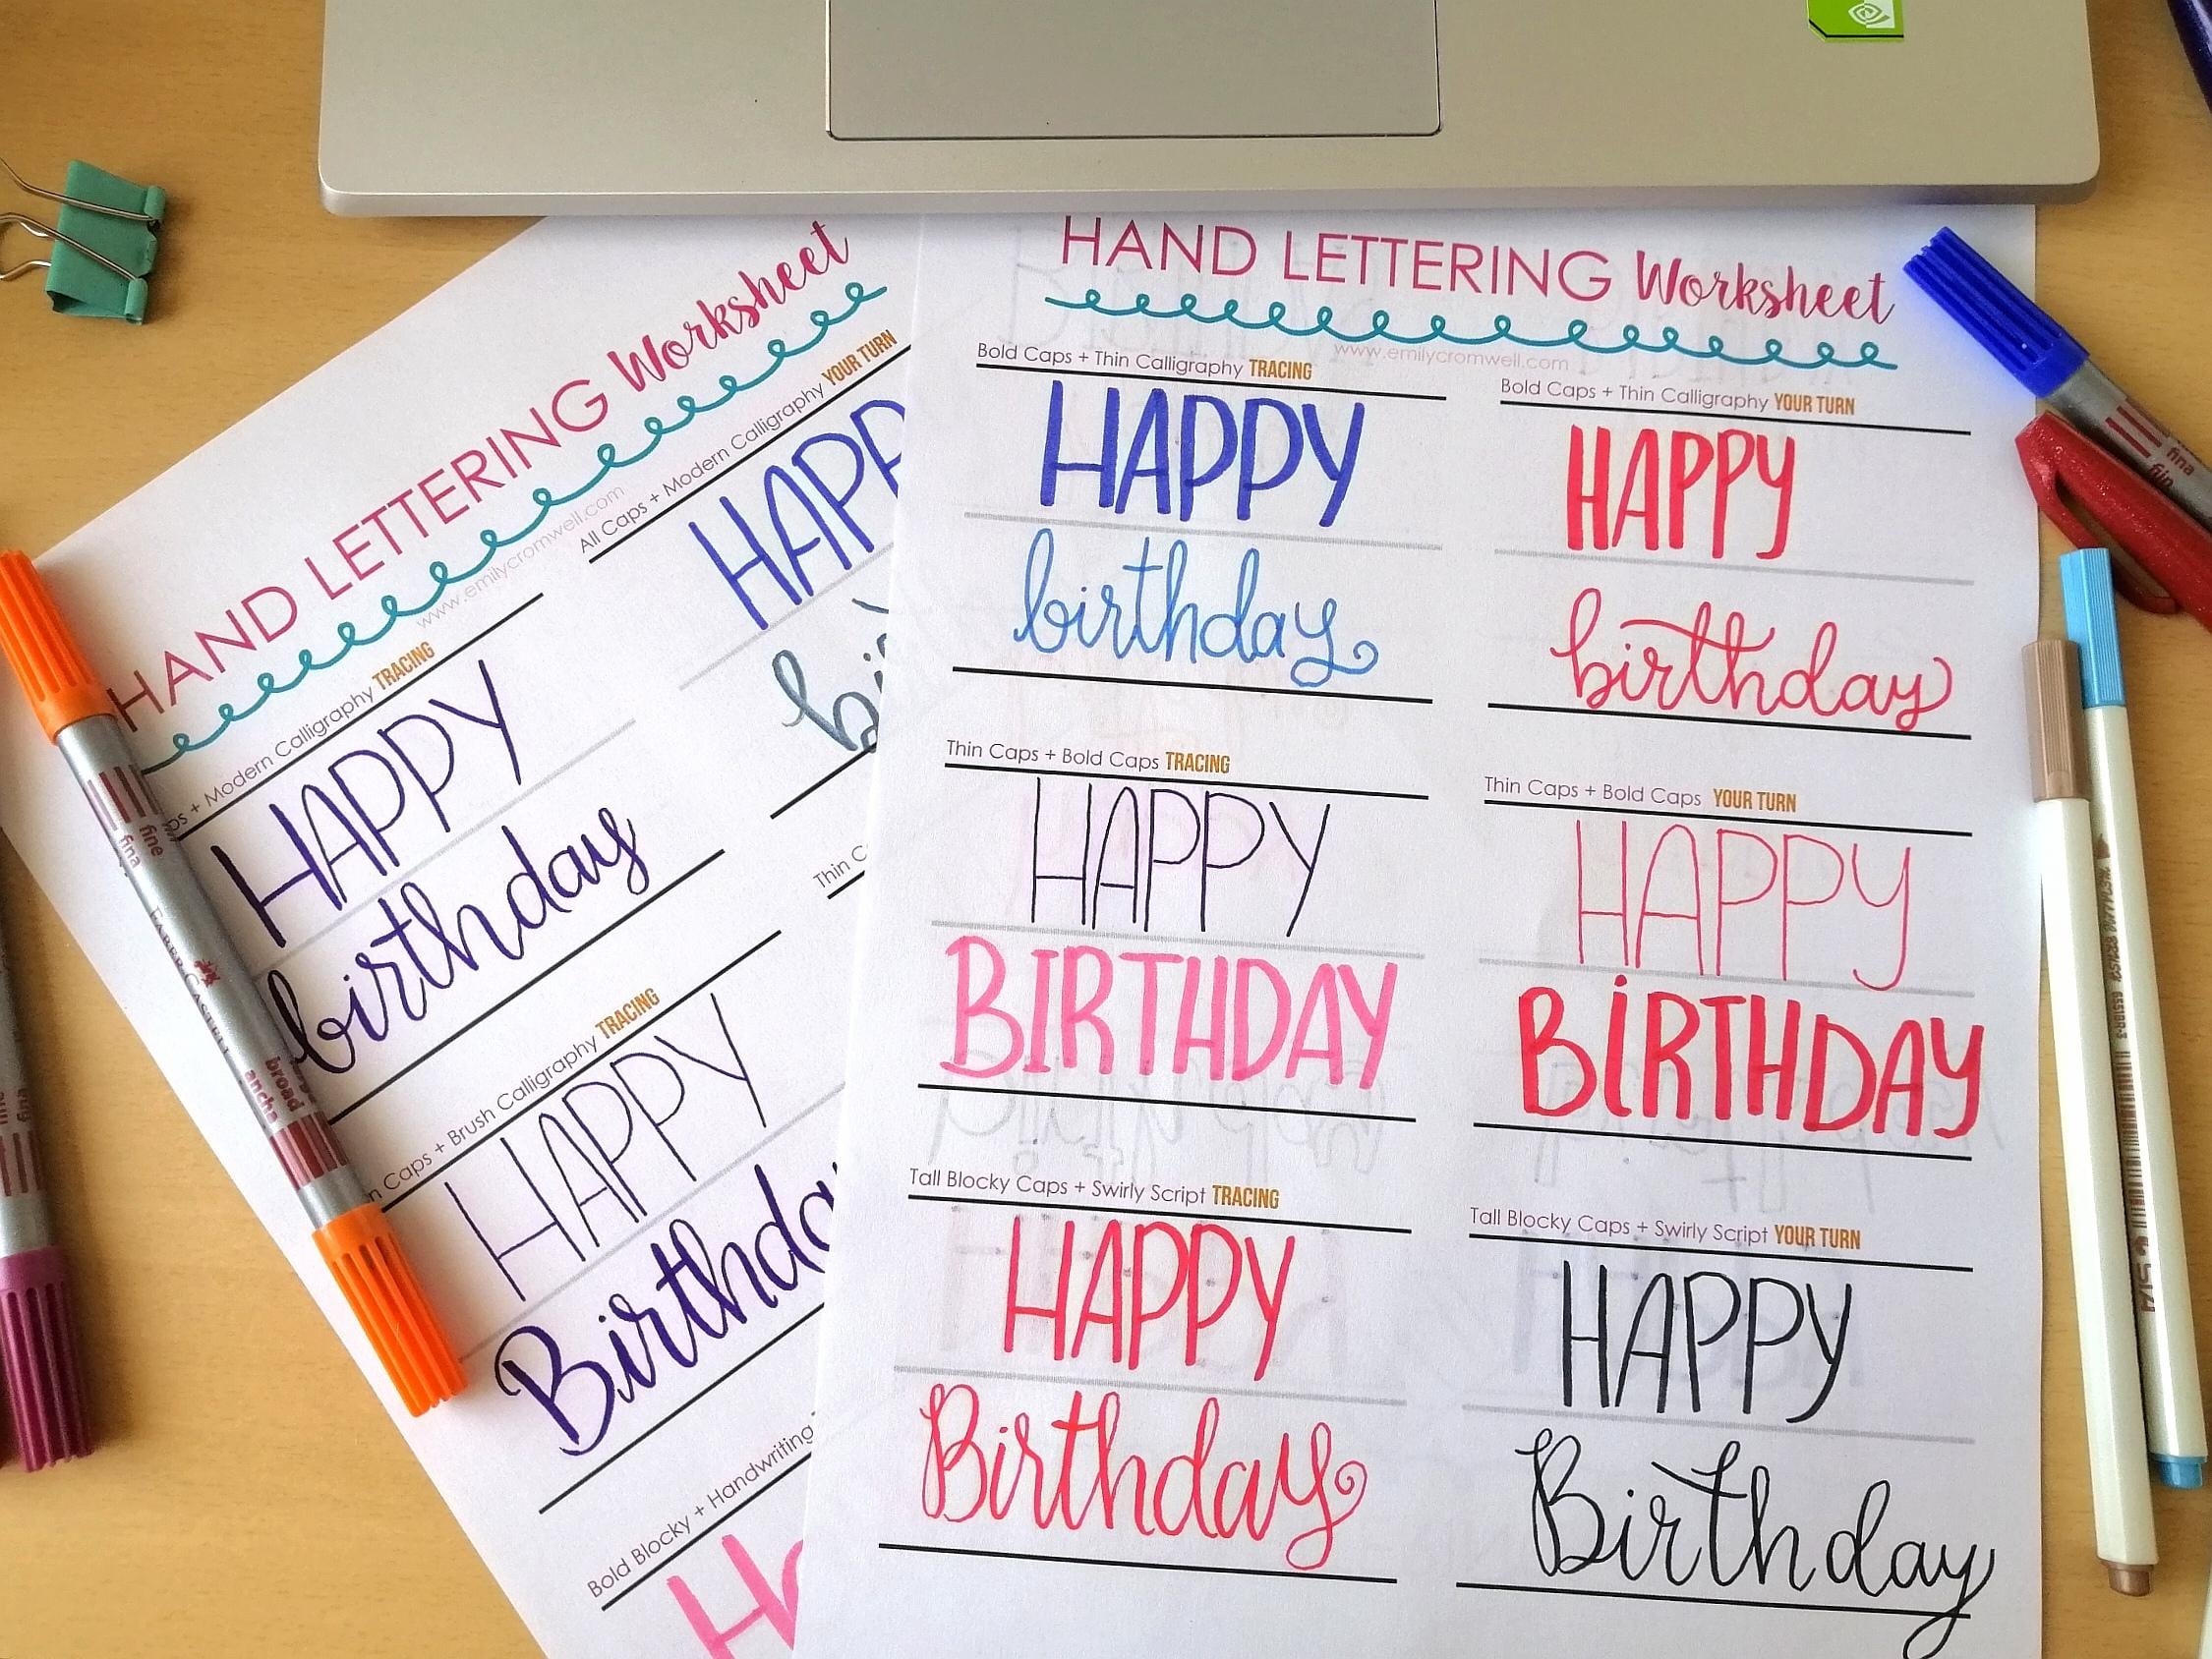 HAND LETTERING Worksheet
www.emilycromwell.com
All Caps + Modern Calligraphy YOUR TURN
HAPP
bi
+ Modern Calligraphy TRACING
HAPPY
birthday
Thin C
Caps + Brush Calligraphy TRACING
HAPPY
Birthda
Bold Blocky + Handwriting
Ha
HAND LETTERING Worksheet
www.emilycromwell.com
Bold Caps + Thin Calligraphy TRACING
HAPPY
birthday
Bold Caps + Thin Calligraphy YOUR TURN
HAPPY
birthday
Thin Caps + Bold Caps TRACING
HAPPY
BIRTHDAY
Thin Caps + Bold Caps YOUR TURN
HAPPY
BiRTHDAY
Tall Blocky Caps + Swirly Script TRACING
HAPPY
Birthday
Tall Blocky Caps + Swirly Script YOUR TURN
HAPPY
Birthday
fine
fina
FABER-CASTELL
broad
ancha
fine
fina
fina
fin